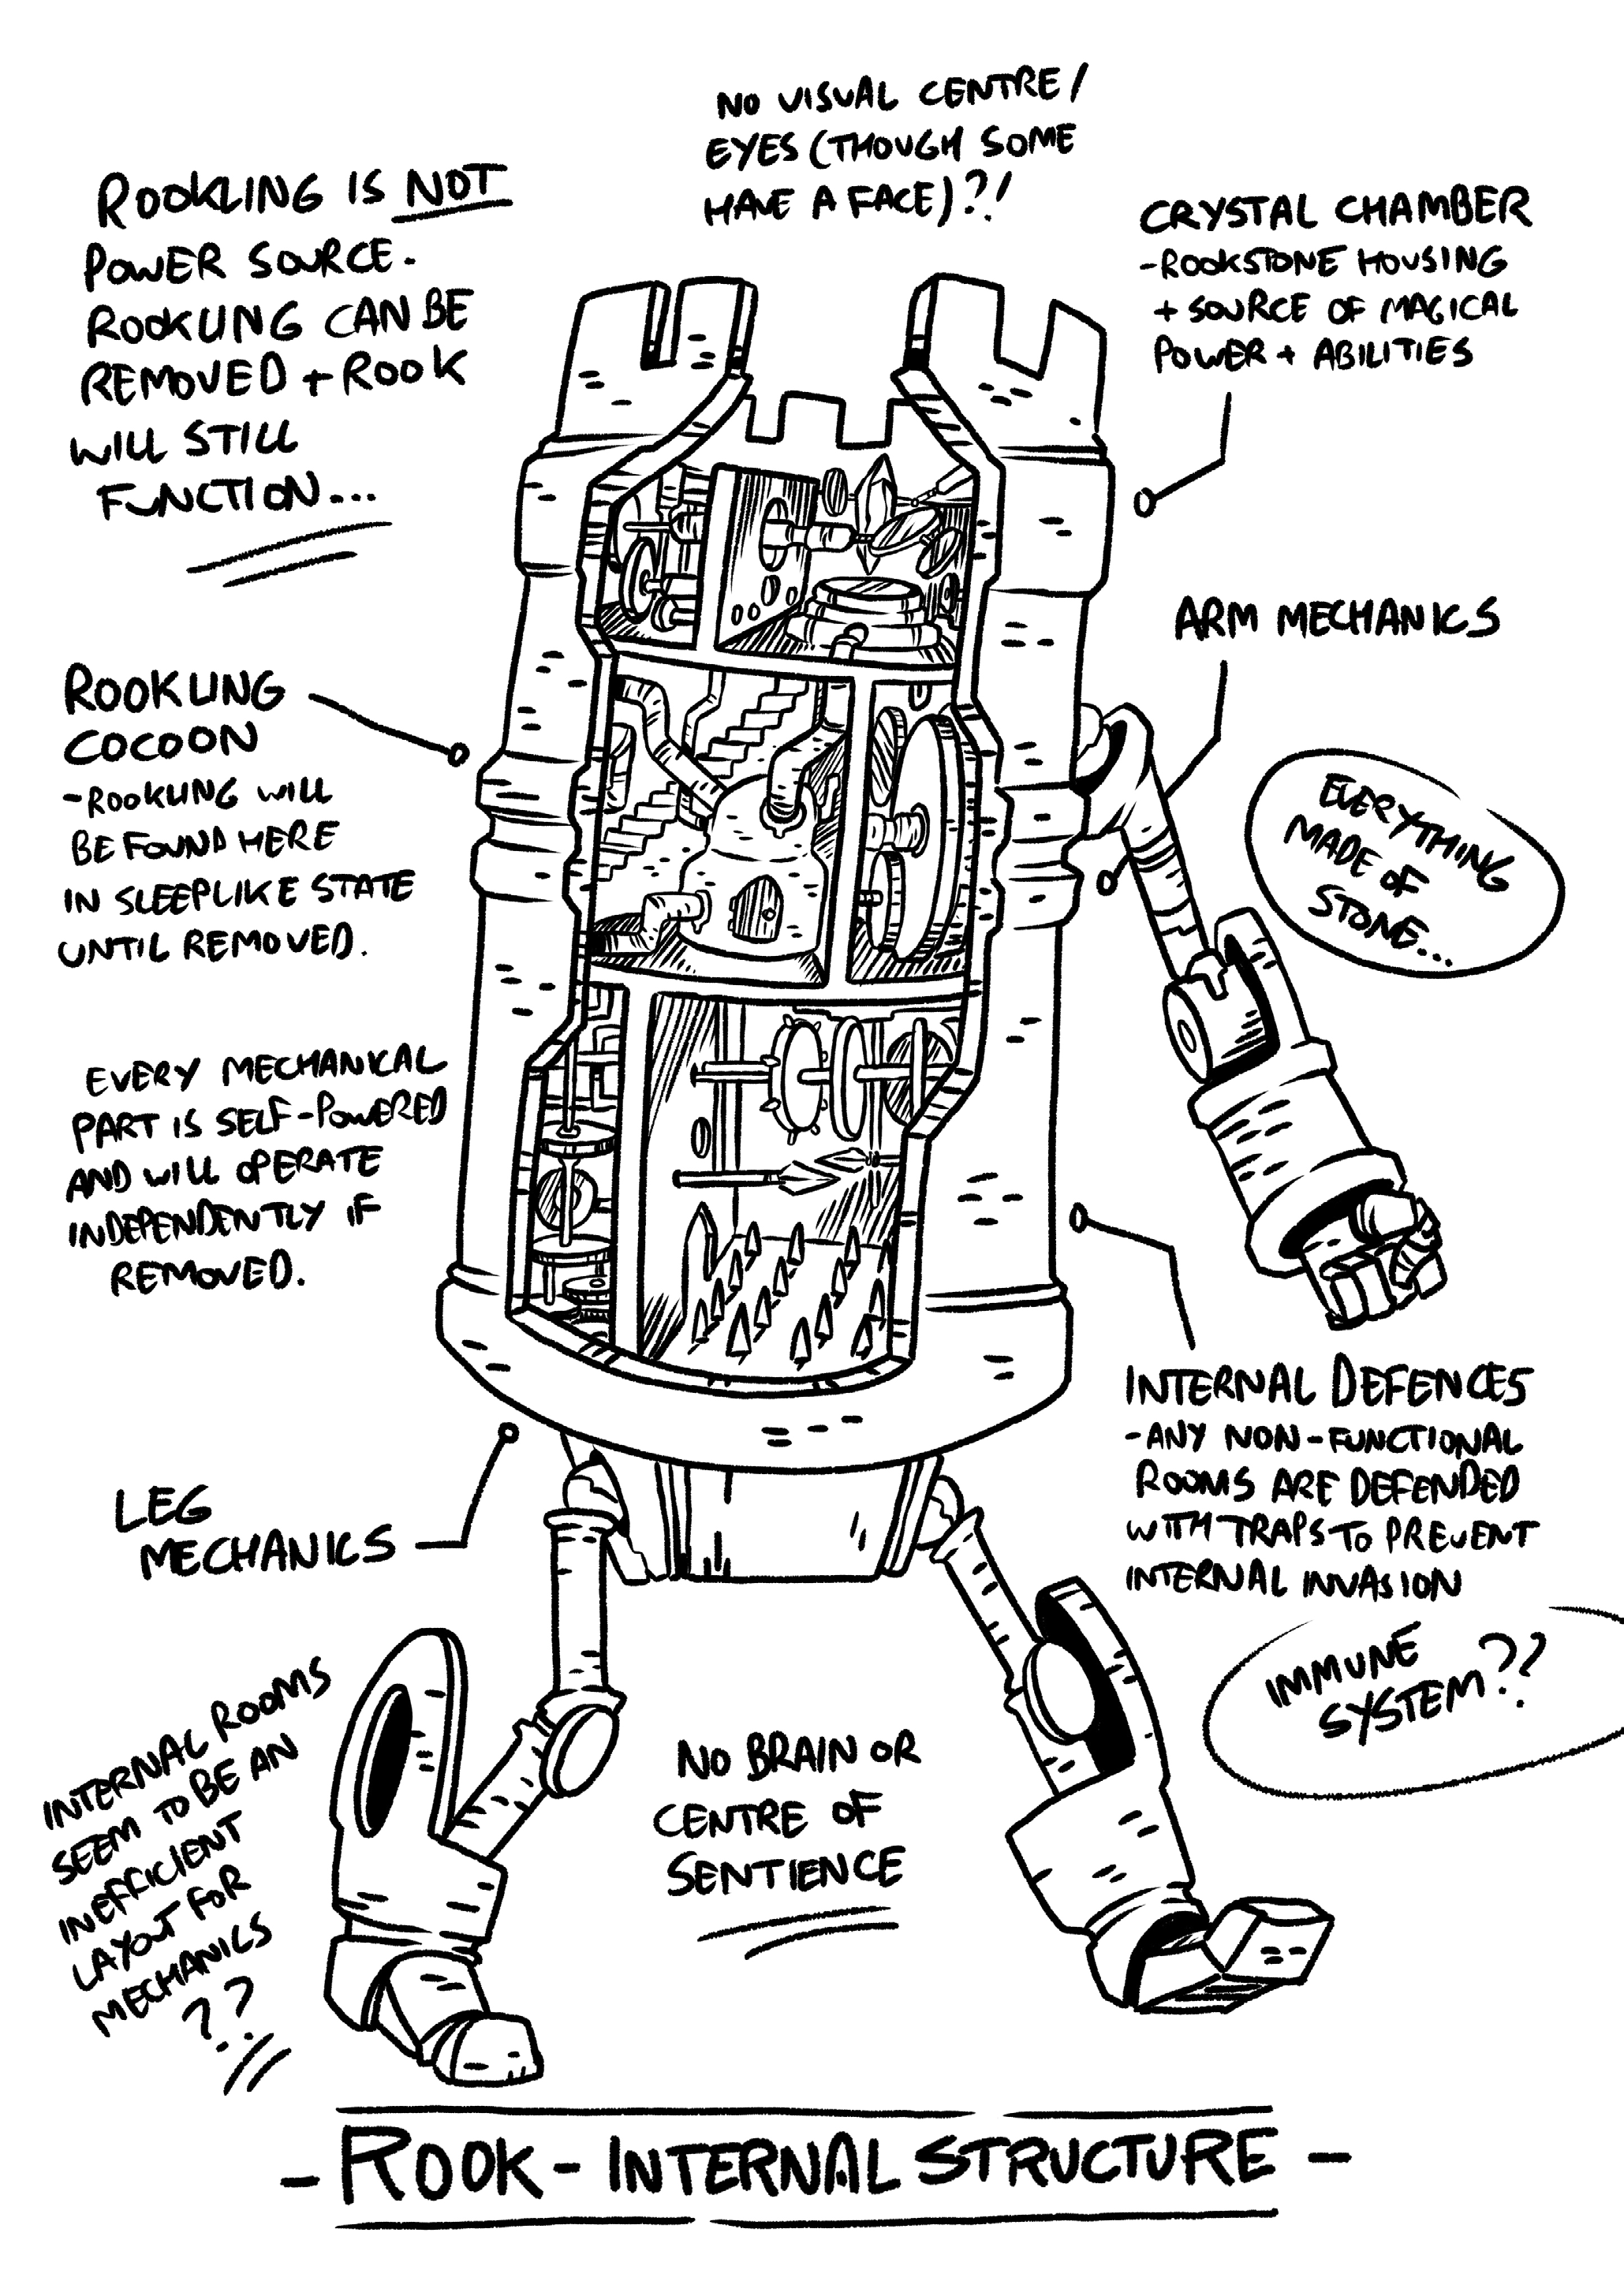 NO VISUAL CENTRE/
EYES (THOUGH SOME
HAVE A FACE)?!
ROOKLING IS NOT
POWER SOURCE.
ROOKLING CAN BE
REMOVED + ROOK
WILL STILL
FUNCTION...
CRYSTAL CHAMBER
-ROOKSTONE HOUSING
+ SOURCE OF MAGICAL
POWER + ABILITIES
ARM MECHANICS
ROOKLING
COCOON
-ROOKLING WILL
BE FOUND HERE
IN SLEEPLIKE STATE
UNTIL REMOVED.
EVERYTHING
MADE OF
STONE...
EVERY MECHANICAL
PART IS SELF-POWERED
AND WILL OPERATE
INDEPENDENTLY IF
REMOVED.
INTERNAL DEFENCES
-ANY NON-FUNCTIONAL
ROOMS ARE DEFENDED
WITH TRAPS TO PREVENT
INTERNAL INVASION
LEG
MECHANICS
IMMUNE
SYSTEM??
INTERNAL ROOMS
SEEM TO BE AN
INEFFICIENT
LAYOUT FOR
MECHANICS
??
NO BRAIN OR
CENTRE OF
SENTIENCE
- ROOK - INTERNAL STRUCTURE -